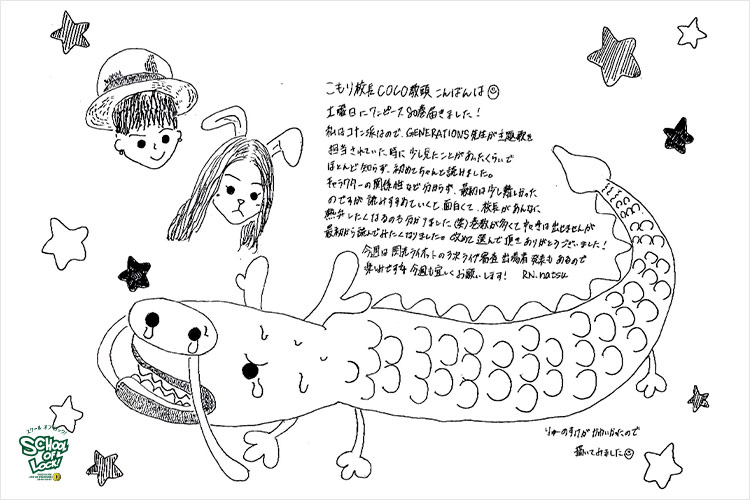 こもり校長COCO教頭 こんばんは
土曜日にワンピース80巻届きました！
私はコナン派なので、GENERATIONS先生が主題歌を
担当されていた時に 少し見たことがあったくらいで
ほとんど知らず、初めてちゃんと読みました。
キャラクターの関係性など分からず、最初は少し難しかった
のですが 読みすすめていくと 面白くて、校長があんなに
熱弁したくなるのも分かりました(笑) 巻数が多くて 中々手は出せませんが
最初から読んでみたくなりました。改めて 選んで頂き ありがとうございました！
今週は 閃光ライオットの3次ライブ審査 出場者 発表も あるので
楽しみです 今週も宜しくお願いします！ RN.natsu
りゅーのすけが かわいかったので
描いてみました
スクール オブ ロック!
SCHOOL
OF
LOCK!